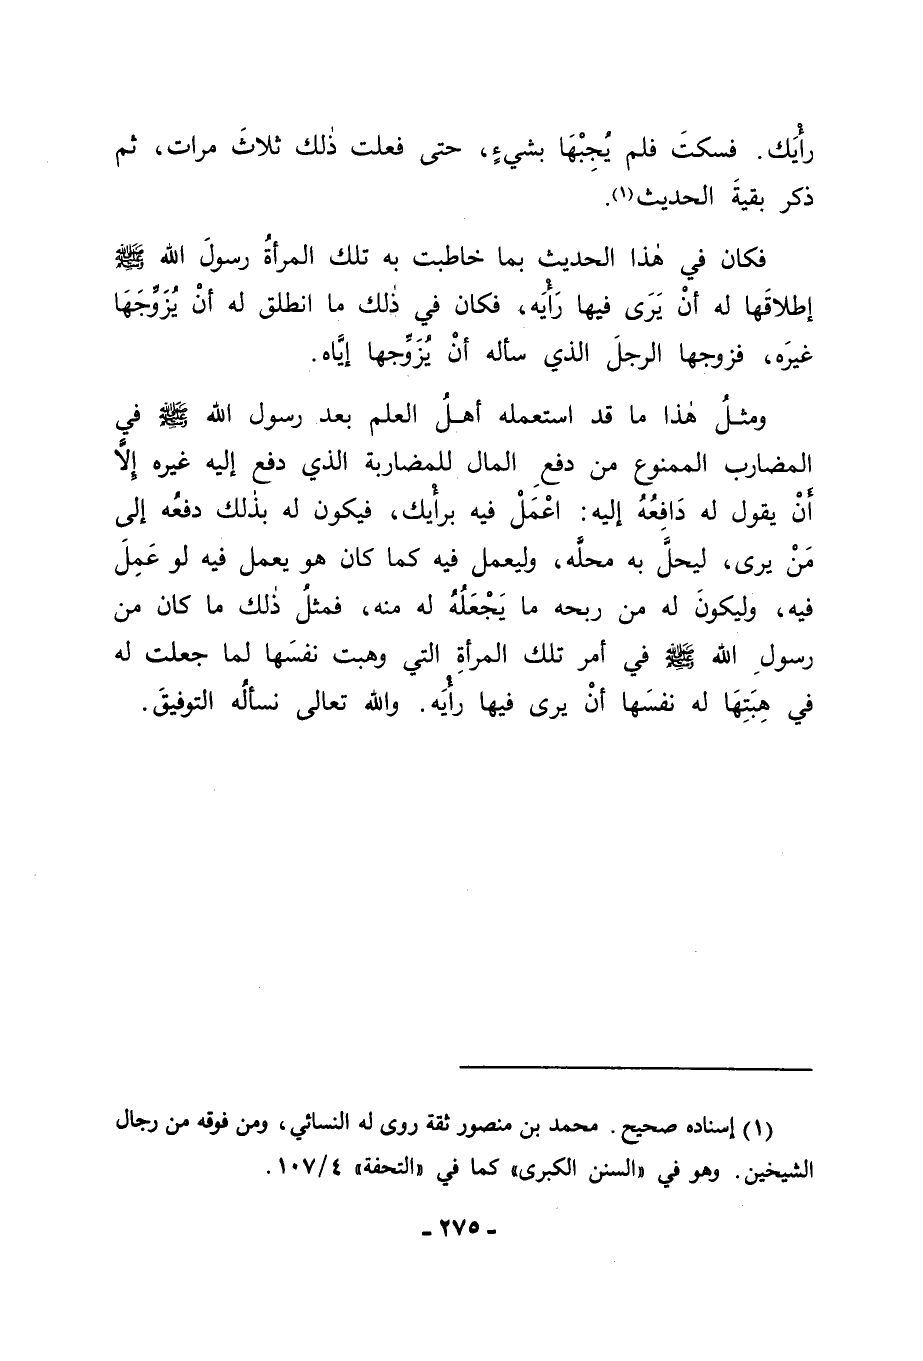 رأْيَك. فسكتَ فلم يُجِبْهَا بشيءٍ، حتى فعلت ذٰلك ثلاثَ مرات، ثم
ذكر بقيةَ الحديث(١).
فكان في هٰذا الحديث بما خاطبت به تلك المرأةُ رسولَ الله ﷺ
إطلاقَها له أنْ يَرَى فيها رَأْيَه، فكان في ذٰلك ما انطلق له أنْ يُزَوِّجَهَا
غيرَه، فزوجها الرجلَ الذي سأله أنْ يُزَوِّجها إيَّاه.
ومثلُ هٰذا ما قد استعمله أهلُ العلم بعد رسول الله ﷺ في
المضارب الممنوع من دفعِ المال للمضاربة الذي دفع إليه غيره إِلَّا
أَنْ يقول له دَافِعُهُ إليه: اعْمَلْ فيه برأْيك، فيكون له بذٰلك دفعُه إلى
مَنْ يرى، ليحلَّ به محلَّه، وليعمل فيه كما كان هو يعمل فيه لو عَمِلَ
فيه، وليكونَ له من ربحه ما يَجْعَلُهُ له منه، فمثلُ ذٰلك ما كان من
رسولِ الله ﷺ في أمر تلك المرأةِ التي وهبت نفسَها لما جعلت له
في هِبَتِهَا له نفسَها أنْ يرى فيها رأْيَه. والله تعالى نسألُه التوفيقَ.
(١) إسناده صحيح. محمد بن منصور ثقة روى له النسائي، ومن فوقه من رجال
الشيخين. وهو في «السنن الكبرى» كما في «التحفة» ١٠٧/٤.
- ٢٧٥ -